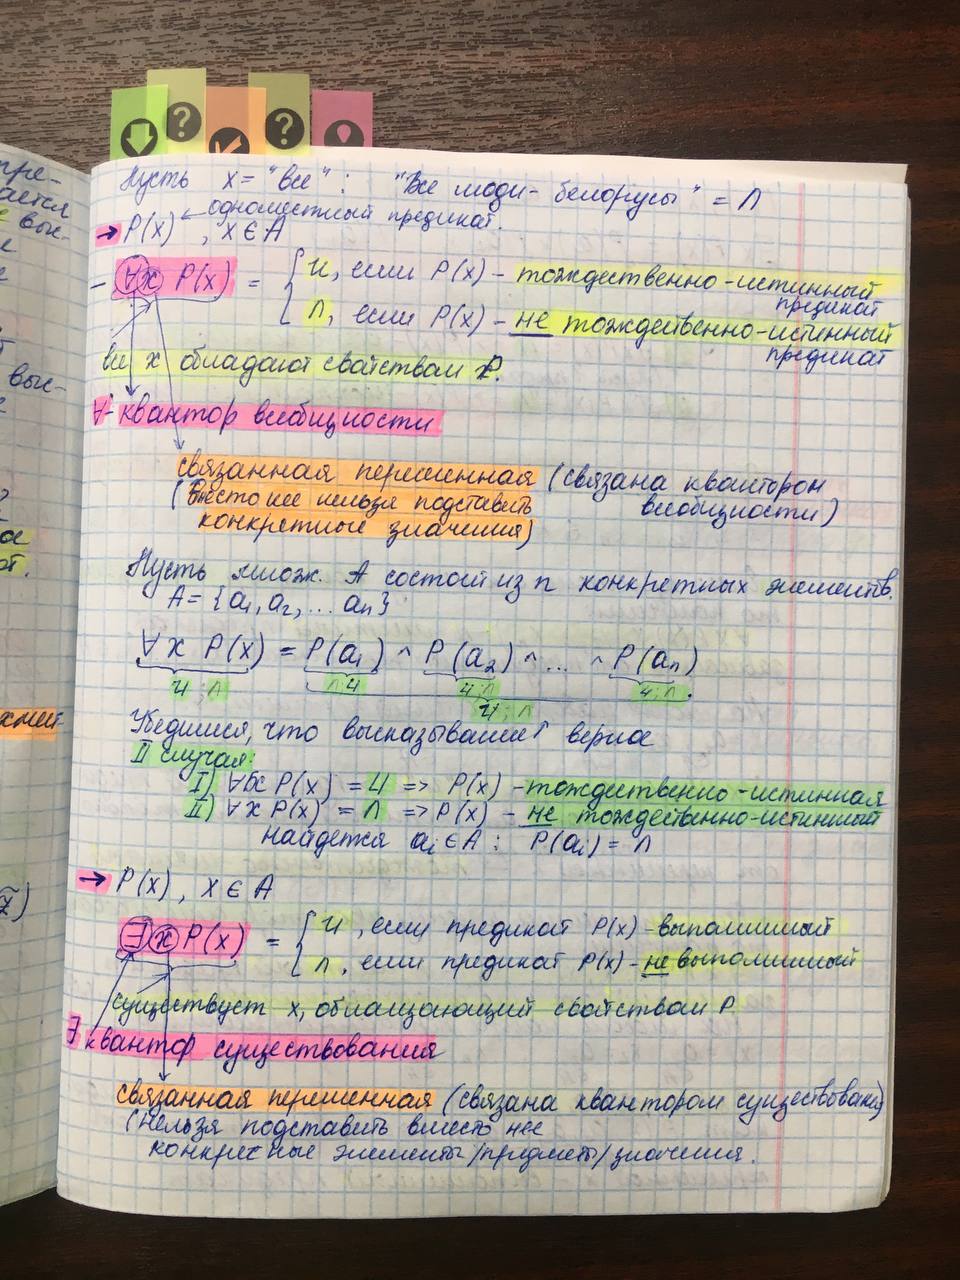 пре-
ается
Пусть x = "все" : "Все люди - белорусы" = Л
→ P(x) ← одноместный предикат.
, x ∈ A
- ∀x P(x) = { И, если P(x) - тождественно-истинный предикат
Л, если P(x) - не тождественно-истинный предикат
все x обладают свойством P.
∀ - квантор всеобщности
связанная переменная (связана квантором всеобщности)
(Вместо нее нельзя подставить
конкретные значения)
Пусть множ. A состоит из n конкретных элементов.
A = {a₁, a₂, ... aₙ}
∀x P(x) = P(a₁) ^ P(a₂) ^ ... ^ P(aₙ)
И;Л Л;И И;Л И;Л
И;Л
Убедимся, что высказывание верно
II случая:
I) ∀x P(x) = И => P(x) - тождественно-истинная
II) ∀x P(x) = Л => P(x) - не тождественно-истинный
найдется aᵢ ∈ A : P(aᵢ) = Л
→ P(x), x ∈ A
∃x P(x) = { И, если предикат P(x) - выполнимый
Л, если предикат P(x) - не выполнимый
существует x, обладающий свойством P.
∃ квантор существования
связанная переменная (связана квантором существования)
(Нельзя подставить вместо нее
конкретные элементы/предметы/значения.